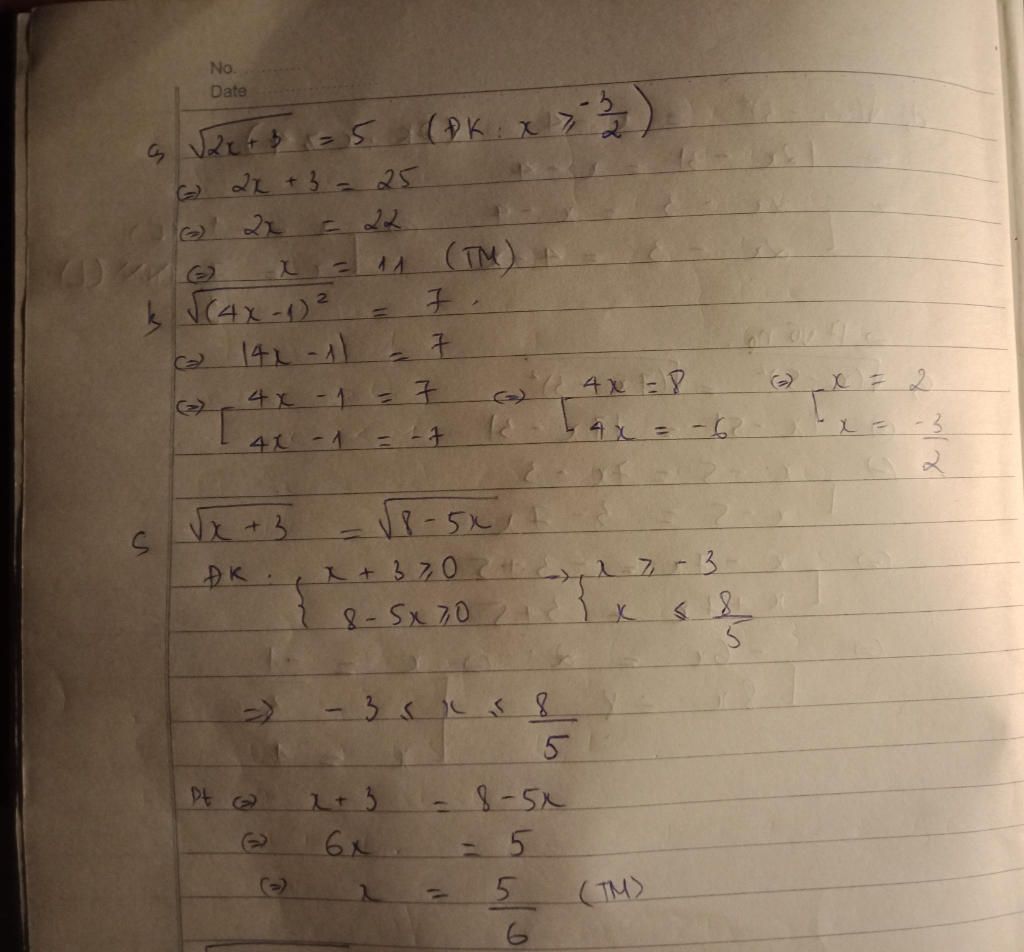 No.
Date
a, √(2x+3) = 5 (ĐK: x ≥ -3/2)
<=> 2x + 3 = 25
<=> 2x = 22
<=> x = 11 (TM)
b, √((4x-1)²) = 7.
<=> |4x-1| = 7
<=> [ 4x - 1 = 7 <=> [ 4x = 8 <=> [ x = 2
4x - 1 = -7 4x = -6 x = -3/2
c, √(x+3) = √(8-5x)
ĐK: { x + 3 ≥ 0 => { x ≥ -3
8 - 5x ≥ 0 x ≤ 8/5
=> -3 ≤ x ≤ 8/5
Pt <=> x + 3 = 8 - 5x
<=> 6x = 5
<=> x = 5/6 (TM)